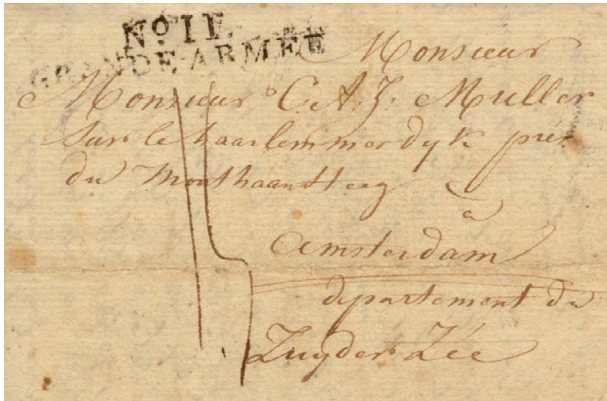 No. 11.
GRANDE-ARMÉE
Monsieur
Monsieur C. A. J. Muller
Sur le haarlemmerdyk près
du Mouthaansteeg
a
Amsterdam
departement du
Zuyder Zée